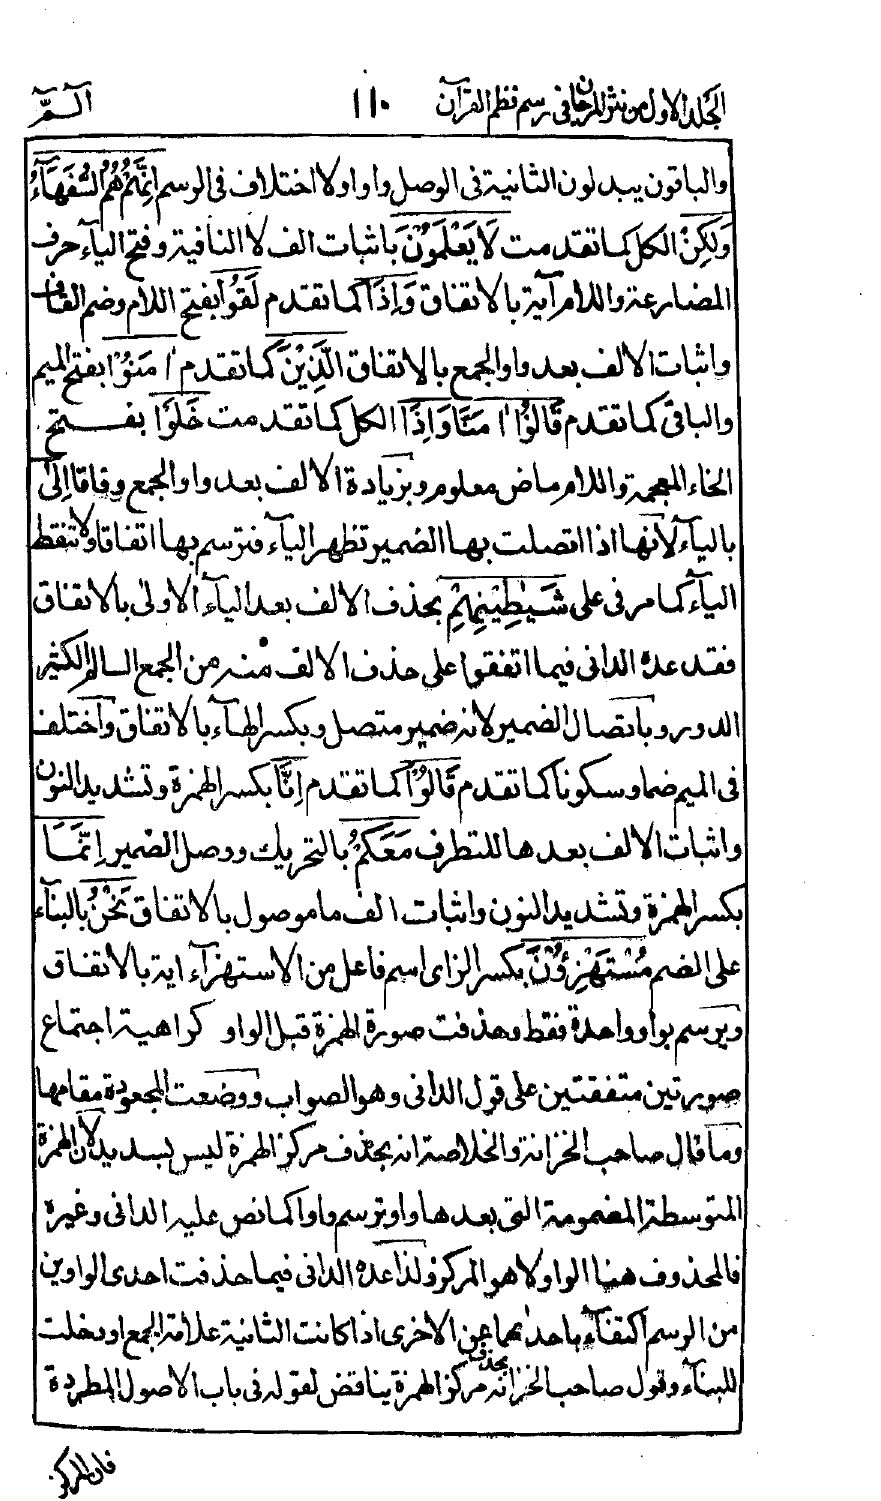 الجلد الاول من نثر المرجان فى رسم نظم القرآن ١١٠ الٓـمّٓ
والباقون يبدلون الثانية فى الوصل واوا ولا اختلاف فى الرسم اِنَّهُمْ هُمُ السُّفَهَآءُ
وَلٰكِنْ الكل كما تقدمت لَا يَعْلَمُوْنَ باثبات الف لا النافية وفتح اليآء حرف
المضارعة واللام آية بالاتفاق وَاِذَا كما تقدم لَقُوا بفتح اللام وضم القاف
واثبات الالف بعد واو الجمع بالاتفاق الَّذِيْنَ كما تقدم اٰمَنُوْا بفتح الميم
والباقى كما تقدم قَالُوْٓا اٰمَنَّا وَاِذَا الكل كما تقدمت خَلَوْا بفتح
الخاء المعجمة واللام ماض معلوم وبزيادة الالف بعد واو الجمع وفاقا اِلٰى
باليآء لانها اذا اتصلت بها الضمير تظهر اليآء فترسم بها اتفاقا ولا تنقط
اليآء كما مر فى على شَيٰطِيْنِهِمْ بحذف الالف بعد اليآء الاولى بالاتفاق
فقد عده الدانى فيما اتفقوا على حذف الالف منه من الجمع السالم الكثير
الدور وباتصال الضمير لانه ضمير متصل وبكسر الهآء بالاتفاق واختلف
فى الميم ضما وسكونا كما تقدم قَالُوْٓا كما تقدم اِنَّا بكسر الهمزة وتشديد النون
واثبات الالف بعدها للتطرف مَعَكُمْ بالتحريك ووصل الضمير اِنَّمَا
بكسر الهمزة وتشديد النون واثبات الف ما موصول بالاتفاق نَحْنُ بالبنآء
على الضم مُسْتَهْزِءُوْنَ بكسر الزاى اسم فاعل من الاستهزآء اية بالاتفاق
ويرسم بواو واحدة فقط وحذفت صورة الهمزة قبل الواو كراهية اجتماع
صورتين متفقتين على قول الدانى وهو الصواب ووضعت المجعودة مقامها
وما قال صاحب الخزانة والخلاصة انه بحذف مركز الهمزة ليس بسديد لان الهمزة
المتوسطة المضمومة التى بعدها واو ترسم واوا كما نص عليه الدانى وغيره
فالمحذوف هنا الواو لا هو المركز ولذا عده الدانى فيما حذفت احدى الواوين
من الرسم اكتفآء باحدٰهما عن الاخرى اذا كانت الثانية علامة الجمع او دخلت
للبنآء وقول صاحب الخزانة بحذف مركز الهمزة يناقض لقوله فى باب الاصول المطردة
فان المركز